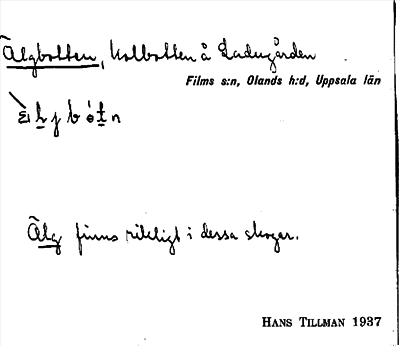 Älgbotten, kolbotten å Ladugården
Films s:n, Olands h:d, Uppsala län
Älg finns rikligt i dessa skogar.
HANS TILLMAN 1937